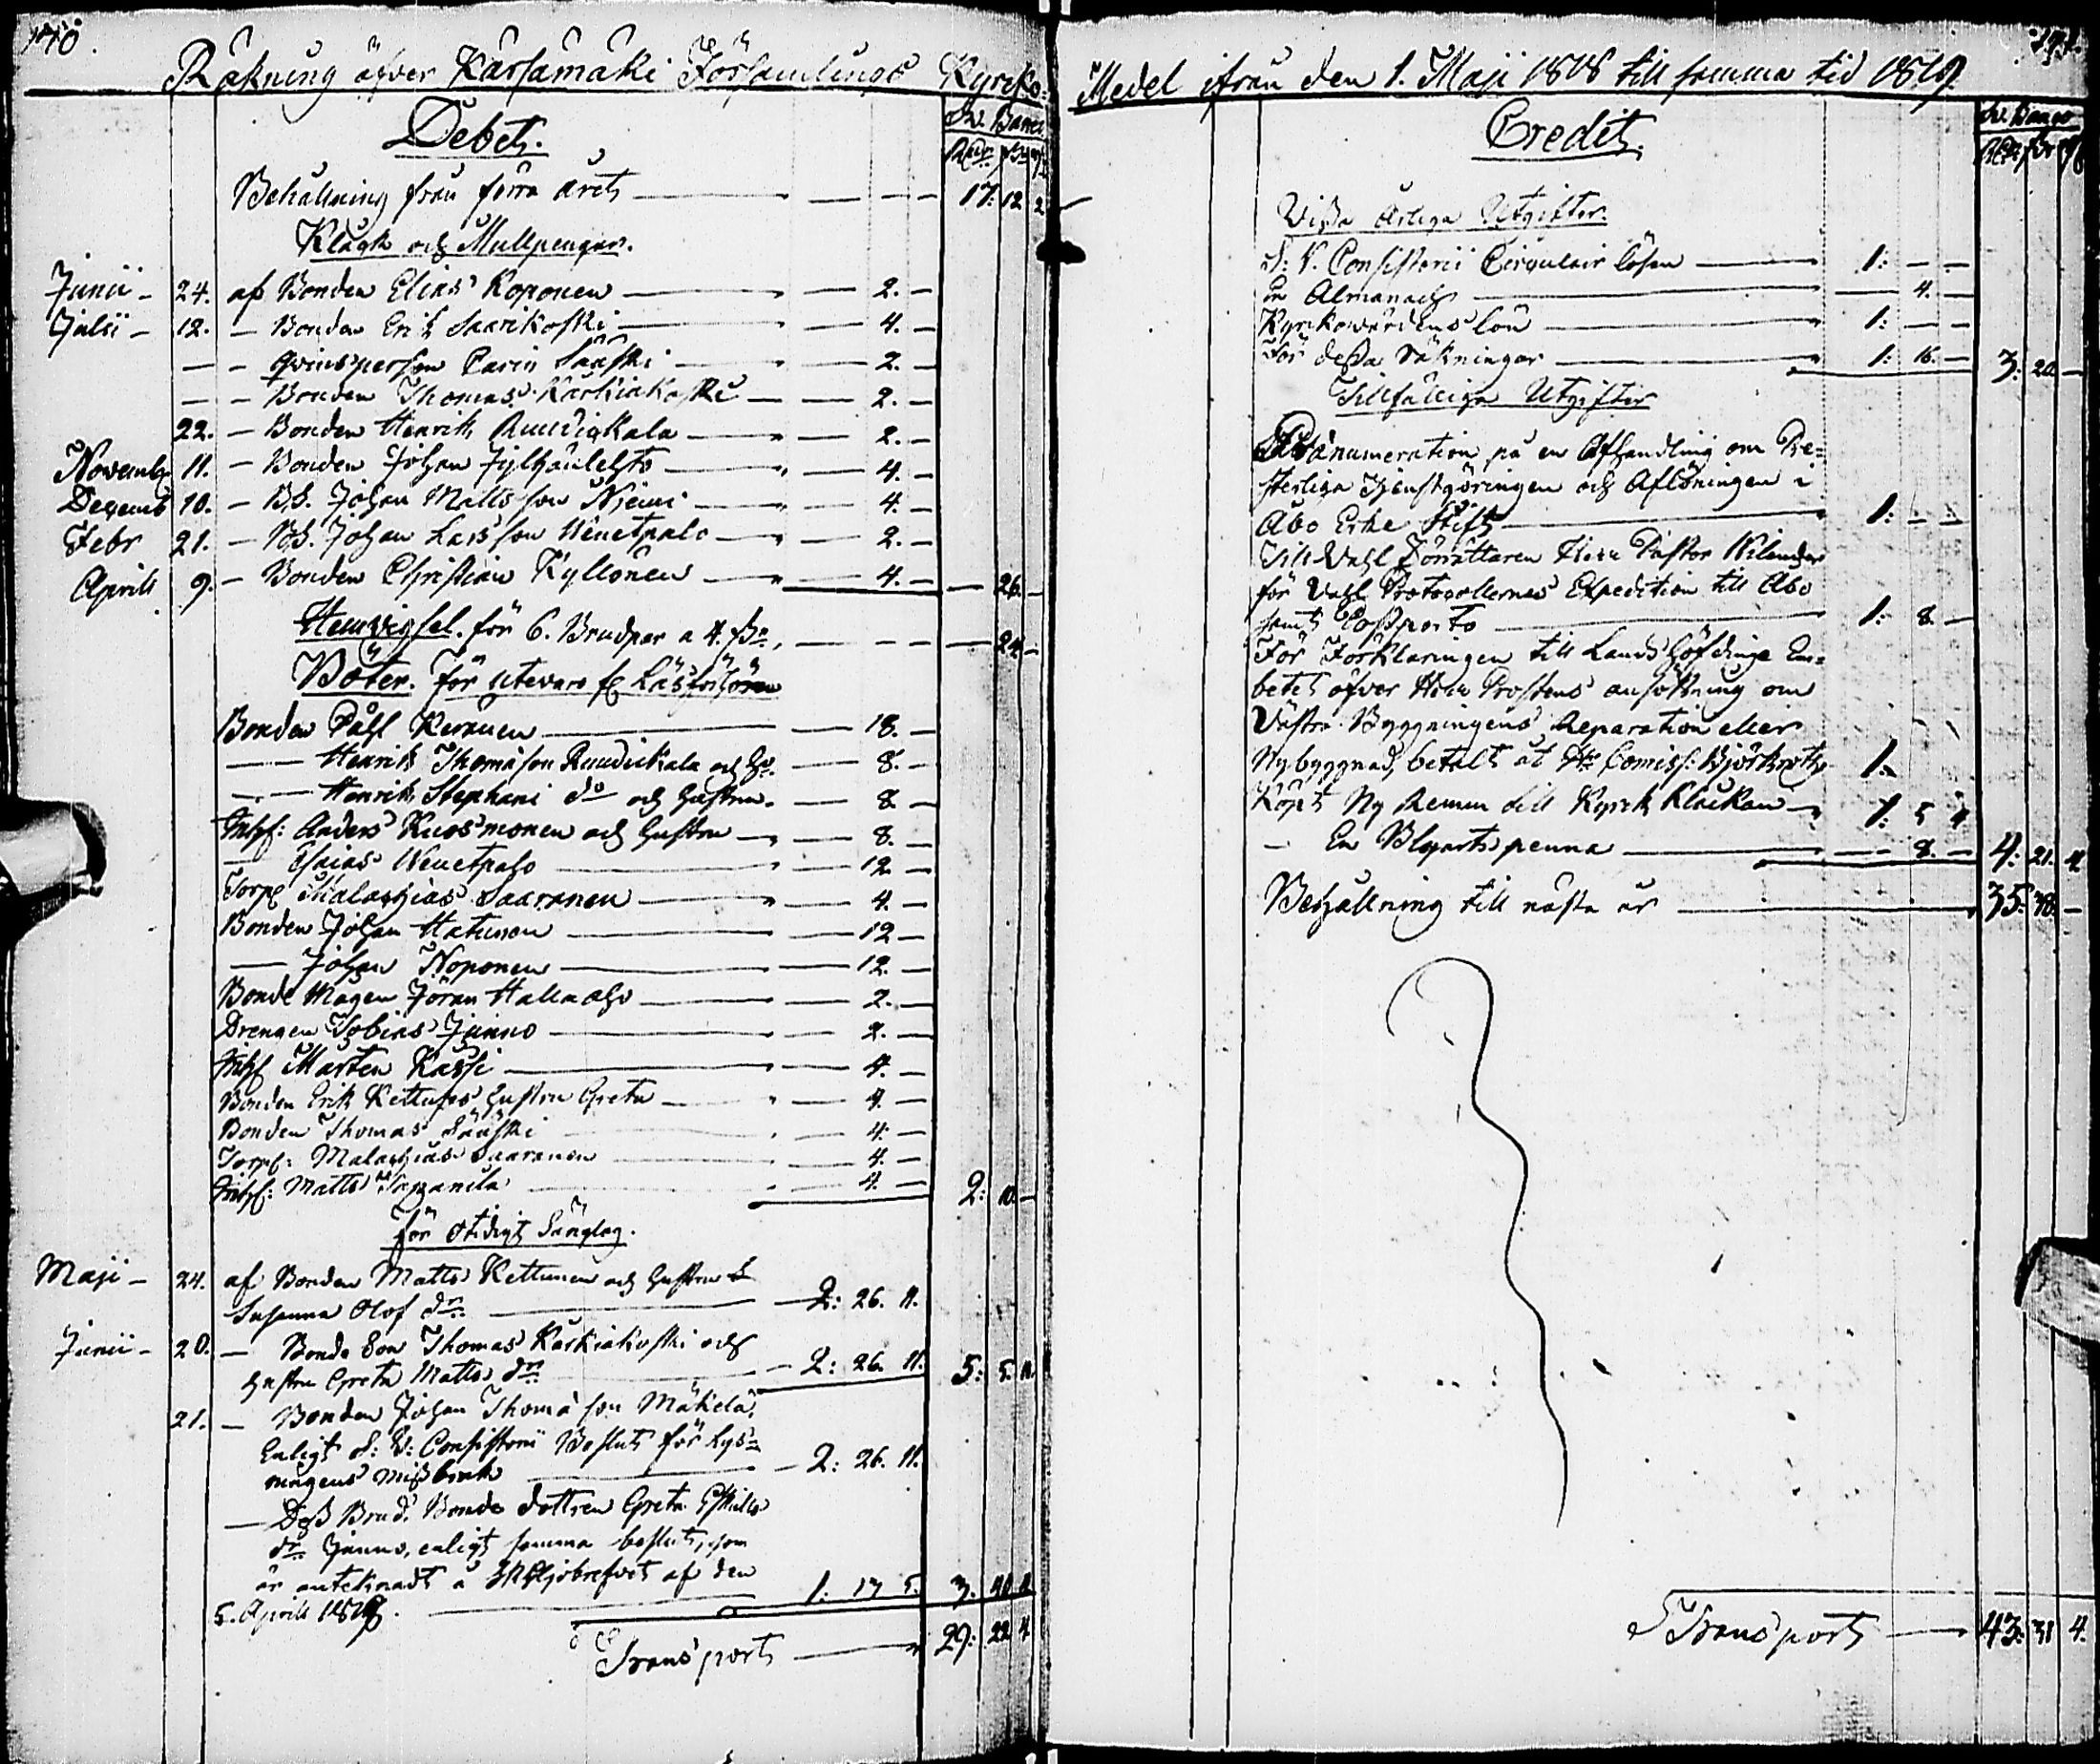 170.
Räkning öfver Kärsämäki Församlings Kyrko-
Debet.
Sv. Banco
Rdr ßr
Behållning från förra året — 17: 12 2
Klåck och Mullpengar.
Junii – 24. af Bonden Elias Koponen — 2. –
Julii – 12. – Bonden Erik Saarikoski — 4. –
– – qvinsperson Carin Sääski — 2. –
– – Bonden Thomas Kärkiakoski — 2. –
22. – Bonden Henrik Ruudiskala — 2. –
Novembr 11. – Bonden Johan — 4. –
Decemb 10. – Johan Mattsson Niemi — 4. –
Febr 21. – Johan Larsson Wenetpalo — 2. –
Aprill 9. – Bonden Christian Kyllönen — 4. – — 26. –
Hemvigsel. för 6. Brudpar a 4. ßr. — 24 –
Böter. För utevaro fr. Läsförhören
Bonden Påhl Keränen — 18. –
— Henrik Thomasson Ruudiskala och Hu. — 8. –
— Henrik Stephani do och hustru — 8 –
Inhs: Anders Kuosmonen och hustru — 8. –
— Esaias Wenetpalo — 12 –
Torp. Malachias Saaranen — 4. –
Bonden Johan Hatunen — 12 –
— Johan Noponen — 12. –
Bonde Mågen Jöran Hallaaho — 2. –
Drengen Tobias Junno — 2. –
Inhs Mårten Kässi — 4. –
Bonden Erik Kettunes hustru Greta — 4. –
Bonden Thomas Sääski — 4. –
Torp: Malachias Saaranen — 4. –
Inhs: Matts Tapanila — 4. – 2: 10. –
för otidigt Sänglag.
Maji – 24. af Bonden Matts Kettunen och hustru
Susanna Olof dr. — 2: 26. 11.
Junii – 20. – Bonde Son Thomas Kärkiakoski och
hustru Greta Matts dr. — 2: 26. 11. 5: 5. 11.
21. – Bonden Johan Thomasson Mäkelä,
Enligt S: V: Consistorii Beslut för Lys-
ningens missbruk — 2: 26. 11.
— Dess Brud, Bonde dottren Greta Eskils
dr. Junno, enligt samma beslut, som
är anteknadt å af den
5. Aprill — 1: 17 5.
Transport — 29: 22 4
Medel ifrån den 1. Maji 1818 till samma tid 1819.
Credit.
Sv. Banco
Rdr ßr
Vissa årliga Utgifter.
S: V. Consistorii Circulair lösen — 1: – –
En Almanach — 4. –
Kyrkovärdens lön — 1: – –
För dessa räkningar — 1: 16. – 3: 20. –
Tillfälliga Utgifter
Pränumeration på en Afhandling om Pre-
sterliga Tjenstgöringen och Aflöningen i
Åbo Erke Stift — 1: – –
Till Vahl Förrättaren Herr Pastor
för Vahl Protocollernas Expedition till Åbo
samt Postporto — 1: 8. –
För Förklaringen till Landshöfdinge Em-
betet öfver Herr Prostens ansökning om
Västra Byggningens Reparation eller
Nybyggnad, betalt åt Hr Comiss: — 1.
Köpt Ny Remm till Kyrk Klåckan — 1: 5 4
– En Blyerts penna — 8. – 4: 21. 4
Behållning till nästa år — 35: 38. –
Transport — 43: 31 4.